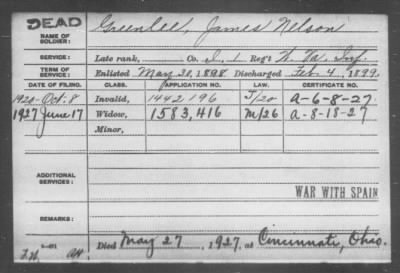 DEAD
NAME OF SOLDIER: Greenlee, James Nelson
SERVICE: Late rank, Co. I, 1 Reg't W. Va. Inf.
TERM OF SERVICE: Enlisted May 30, 1898 Discharged Feb. 4, 1899.
DATE OF FILING. CLASS. APPLICATION NO. LAW. CERTIFICATE NO.
1920-Oct. 8 Invalid, 1442196 J/20 A-6-8-27
1927 June 17 Widow, 1583,416 M/26 a-8-18-27
Minor,
ADDITIONAL SERVICES:
WAR WITH SPAIN
REMARKS:
Died May 27, 1927, at Cincinnati, Ohio.